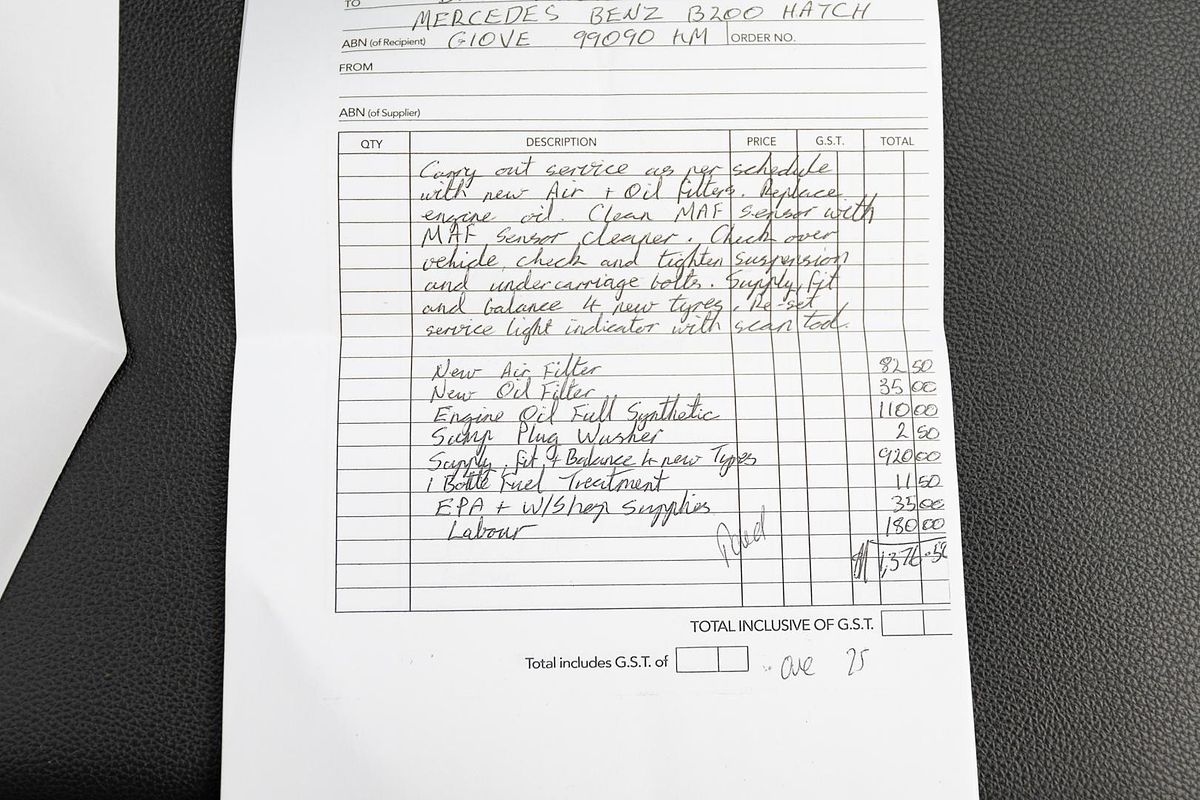 TO
MERCEDES BENZ B200 HATCH
ABN (of Recipient) GIOVE 99090 KM ORDER NO.
FROM
ABN (of Supplier)
QTY DESCRIPTION PRICE G.S.T. TOTAL
Carry out service as per schedule
with new Air + Oil filters. Replace
engine oil. Clean MAF sensor with
MAF sensor cleaner. Check over
vehicle, check and tighten suspension
and undercarriage bolts. Supply, fit
and balance 4 new tyres. Re-set
service light indicator with scan tool.
New Air Filter 82 50
New Oil Filter 35 00
Engine Oil Full Synthetic 110 00
Sump Plug Washer 2 50
Supply, Fit, + Balance 4 new Tyres 920 00
1 Bottle Fuel Treatment 11 50
EPA + W/Shop Supplies 35 00
Labour 180 00
Paid
$ 1,376.50
TOTAL INCLUSIVE OF G.S.T.
Total includes G.S.T. of
25